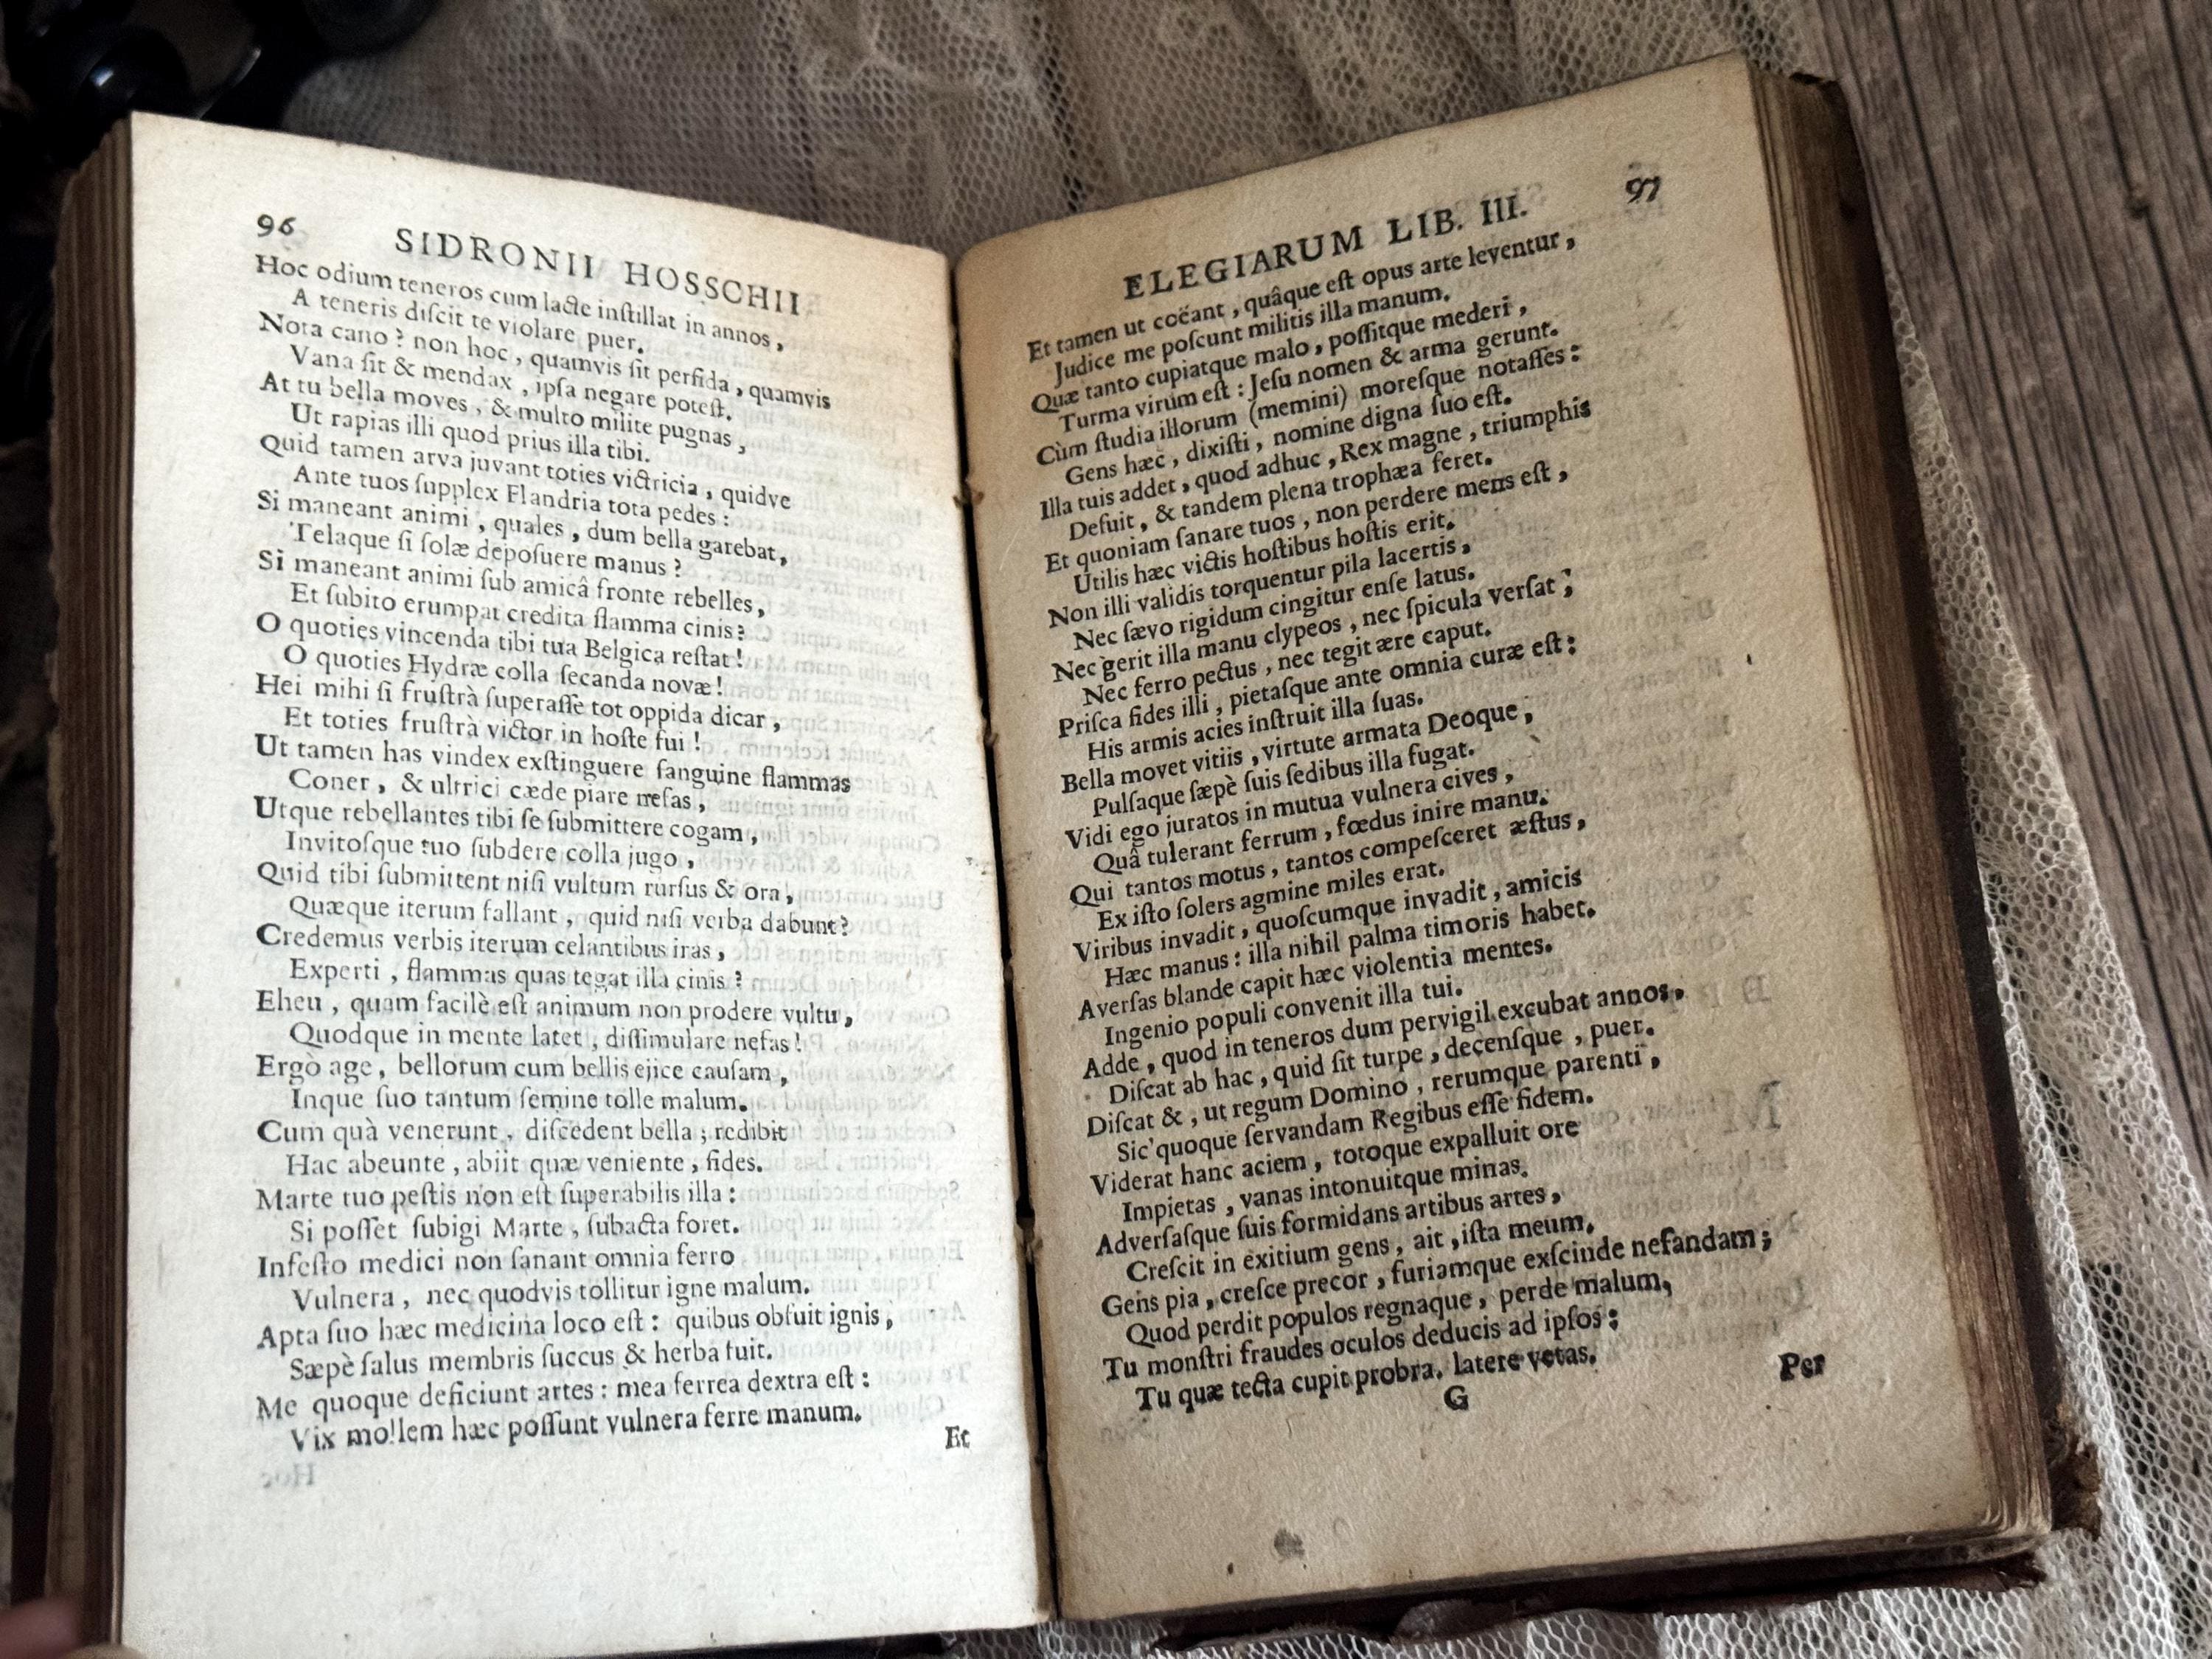 96
SIDRONII HOSSCHII
Hoc odium teneros cum lacte inſtillat in annos,
A teneris diſcit te violare puer.
Nota cano? non hoc, quamvis ſit perfida, quamvis
Vana ſit & mendax, ipſa negare poteſt.
At tu bella moves, & multo milite pugnas,
Ut rapias illi quod prius illa tibi.
Quid tamen arva juvant toties victricia, quidve
Ante tuos ſupplex Flandria tota pedes:
Si maneant animi, quales, dum bella garebat,
Telaque ſi ſolæ depoſuere manus?
Si maneant animi ſub amicâ fronte rebelles,
Et ſubito erumpat credita flamma cinis?
O quoties vincenda tibi tua Belgica reſtat!
O quoties Hydræ colla ſecanda novæ!
Hei mihi ſi fruſtrà ſuperaſſe tot oppida dicar,
Et toties fruſtrà victor in hoſte fui!
Ut tamen has vindex exſtinguere ſanguine flammas
Coner, & ultrici cæde piare nefas,
Utque rebellantes tibi ſe ſubmittere cogam,
Invitoſque tuo ſubdere colla jugo,
Quid tibi ſubmittent niſi vultum rurſus & ora,
Quæque iterum fallant, quid niſi verba dabunt?
Credemus verbis iterum celantibus iras,
Experti, flammas quas tegat illa cinis?
Eheu, quam facilè eſt animum non prodere vultu,
Quodque in mente latet, diſſimulare nefas!
Ergò age, bellorum cum bellis ejice cauſam,
Inque ſuo tantum ſemine tolle malum.
Cum quà venerunt, diſcedent bella; redibit
Hac abeunte, abiit quæ veniente, fides.
Marte tuo peſtis non eſt ſuperabilis illa:
Si poſſet ſubigi Marte, ſubacta foret.
Infeſto medici non ſanant omnia ferro
Vulnera, nec quodvis tollitur igne malum.
Apta ſuo hæc medicina loco eſt: quibus obfuit ignis,
Sæpè ſalus membris ſuccus & herba fuit.
Me quoque deficiunt artes: mea ferrea dextra eſt:
Vix mollem hæc poſſunt vulnera ferre manum.
Et
ELEGIARUM LIB. III.
97
Et tamen ut coëant, quâque eſt opus arte leventur,
Judice me poſcunt militis illa manum.
Quæ tanto cupiatque malo, poſſitque mederi,
Turma virûm eſt: Jeſu nomen & arma gerunt.
Cùm ſtudia illorum (memini) moreſque notaſſes:
Gens hæc, dixiſti, nomine digna ſuo eſt.
Illa tuis addet, quod adhuc, Rex magne, triumphis
Defuit, & tandem plena trophæa feret.
Et quoniam ſanare tuos, non perdere mens eſt,
Utilis hæc victis hoſtibus hoſtis erit.
Non illi validis torquentur pila lacertis,
Nec ſævo rigidum cingitur enſe latus.
Nec gerit illa manu clypeos, nec ſpicula verſat;
Nec ferro pectus, nec tegit ære caput.
Priſca fides illi, pietaſque ante omnia curæ eſt:
His armis acies inſtruit illa ſuas.
Bella movet vitiis, virtute armata Deoque,
Pulſaque ſæpè ſuis ſedibus illa fugat.
Vidi ego juratos in mutua vulnera cives,
Quâ tulerant ferrum, fœdus inire manu.
Qui tantos motus, tantos compeſceret æſtus,
Ex iſto ſolers agmine miles erat.
Viribus invadit, quoſcumque invadit, amicis
Hæc manus: illa nihil palma timoris habet.
Averſas blande capit hæc violentia mentes.
Ingenio populi convenit illa tui.
Adde, quod in teneros dum pervigil excubat annos,
Diſcat ab hac, quid ſit turpe, decenſque, puer.
Diſcat &, ut regum Domino, rerumque parenti,
Sic quoque ſervandam Regibus eſſe fidem.
Viderat hanc aciem, totoque expalluit ore
Impietas, vanas intonuitque minas.
Adverſaſque ſuis formidans artibus artes,
Creſcit in exitium gens, ait, iſta meum.
Gens pia, creſce precor, furiamque exſcinde nefandam;
Quod perdit populos regnaque, perde malum,
Tu monſtri fraudes oculos deducis ad ipſos;
Tu quæ tecta cupit probra, latere vetas.
G
Per